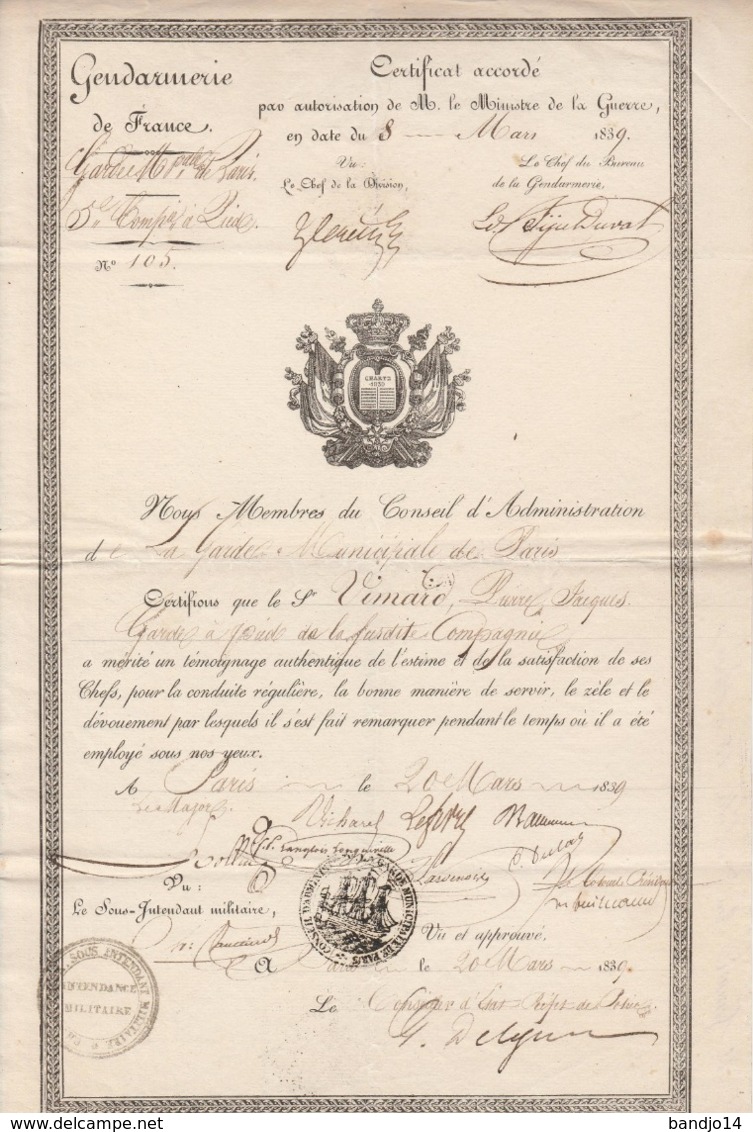 Gendarmerie
de France.
Garde Mpale de Paris.
5e Compie à Pied.
No 105.
Certificat accordé
par autorisation de M. le Ministre de la Guerre,
en date du 8 Mars 1839.
Vu:
Le Chef de la Division,
Le Chef du Bureau
de la Gendarmerie,
Duval
CHARTE
1830
Nous Membres du Conseil d'Administration
de La Garde Municipale de Paris
Certifions que le Sr Vimard, Pierre Jacques
Garde à pied de la susdite Compagnie
a mérité un témoignage authentique de l'estime et de la satisfaction de ses
Chefs, pour la conduite régulière, la bonne manière de servir, le zèle et le
dévouement par lesquels il s'est fait remarquer pendant le temps où il a été
employé sous nos yeux.
A Paris le 20 Mars 1839
Le Major
Richard
Langlois Longueville
Vu:
Le Sous-Intendant militaire,
CONSEIL D'ADMINISTRATION GARDE MUNICIPALE DE PARIS
Le Colonel Président
Vu et approuvé.
A Paris le 20 Mars 1839.
Le Conseiller d'Etat Préfet de Police
G. Delessert
SOUS INTENDANT MILITAIRE
INTENDANCE
MILITAIRE
bandjo14